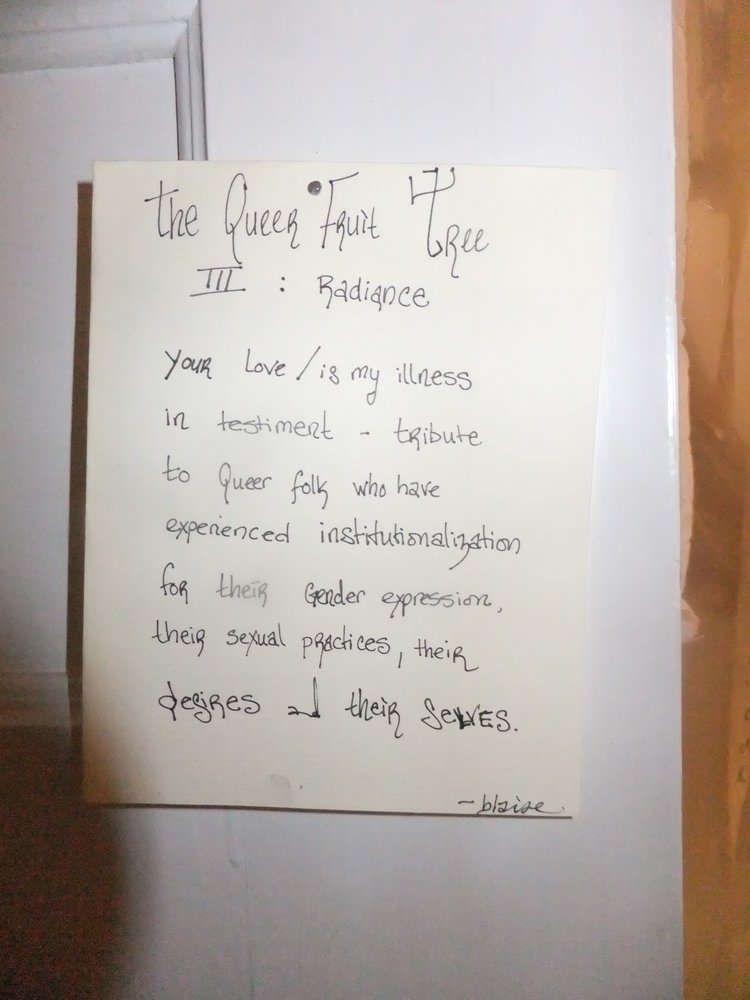 the Queer Fruit Tree
III : Radiance
Your Love / is my illness
in testiment - tribute
to Queer folk who have
experienced institutionalization
for their Gender expression,
their sexual practices, their
desires and their SELVES.
- blaise